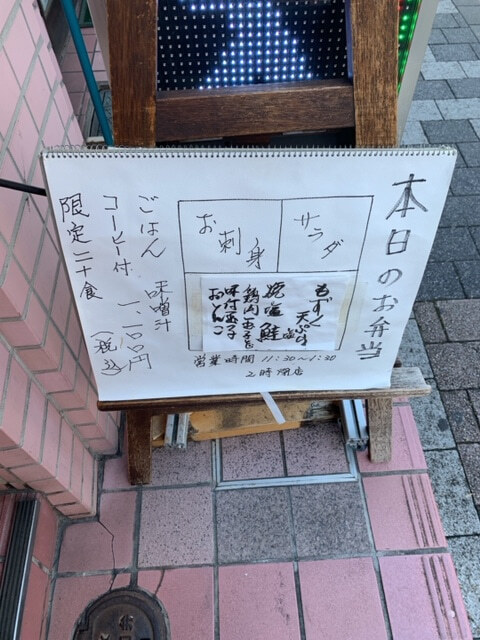 本日のお弁当
サラダ
お刺身
もずく天ぷら
焼塩鮭
味付玉子
おしんこ
営業時間 11:30~1:30
2時閉店
ごはん 味噌汁
コーヒー付 一、一〇〇円
限定二十食 (税込)